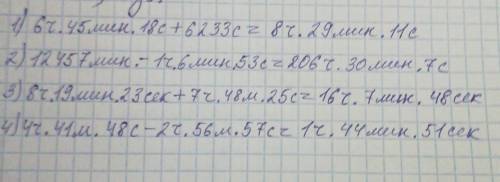 1) 6ч.45мин.18с+6233с= 8ч.29мин.11с
2) 12457мин.-1ч.6мин.53с=206ч.30мин.7с
3) 8ч.19мин.23сек+7ч.48м.25с=16ч.7мин.48сек
4) 4ч.41м.48с-2ч.56м.57с=1ч.44мин.51сек